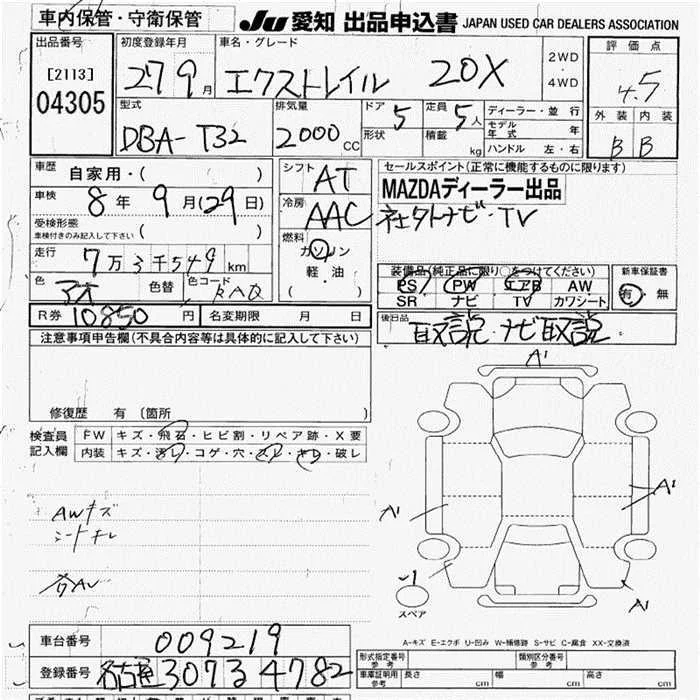 車内保管・守衛保管
JU 愛知 出品申込書 JAPAN USED CAR DEALERS ASSOCIATION
出品番号 [2113] 04305
初度登録年月 27 9 月
車名・グレード エクストレイル 20X
2WD ・ 4WD
評価点 4.5
外装 内装
B B
型式 DBA-T32
排気量 2000 CC
ドア 5 形状
定員 5 人 積載 kg
ディーラー・並 行
モデル年式 年
ハンドル 左・右
車歴 自家用・( )
車検 8 年 9 月(29 日)
受検形態 車検付きのみ記入して下さい ( )
走行 7 万 3 千 549 km
色 色替 色コード
シフト AT
冷房 AAC
燃料 ガソリン
軽・油
( )
セールスポイント(正常に機能するものに限ります)
MAZDAディーラー出品
社外ナビ・TV
装備品(純正品に限り○をつけてください)
PS PW エアB AW
SR ナビ TV カワシート
新車保証書
有・無
R券 10850 円 名変期限 月 日
後日品 取説・ナビ取説
注意事項申告欄(不具合内容等は具体的に記入して下さい)
修復歴 有 (箇所 )
検査員記入欄
FW キズ・飛石・ヒビ割・リペア跡・X要
内装 キズ・汚レ・コゲ・穴・スレ・キレ・破レ
AWキズ
シートキレ
A1
A1
A1
A1
スペア
A-キズ E-エクボ U-凹み W-補修跡 S-サビ C-腐食 XX-交換済
車台番号 009219
登録番号 名古屋 307 3 4782
形式指定番号 参考
類別区分番号 参考
車庫証明用 参考 長さ cm 幅 cm 高さ cm